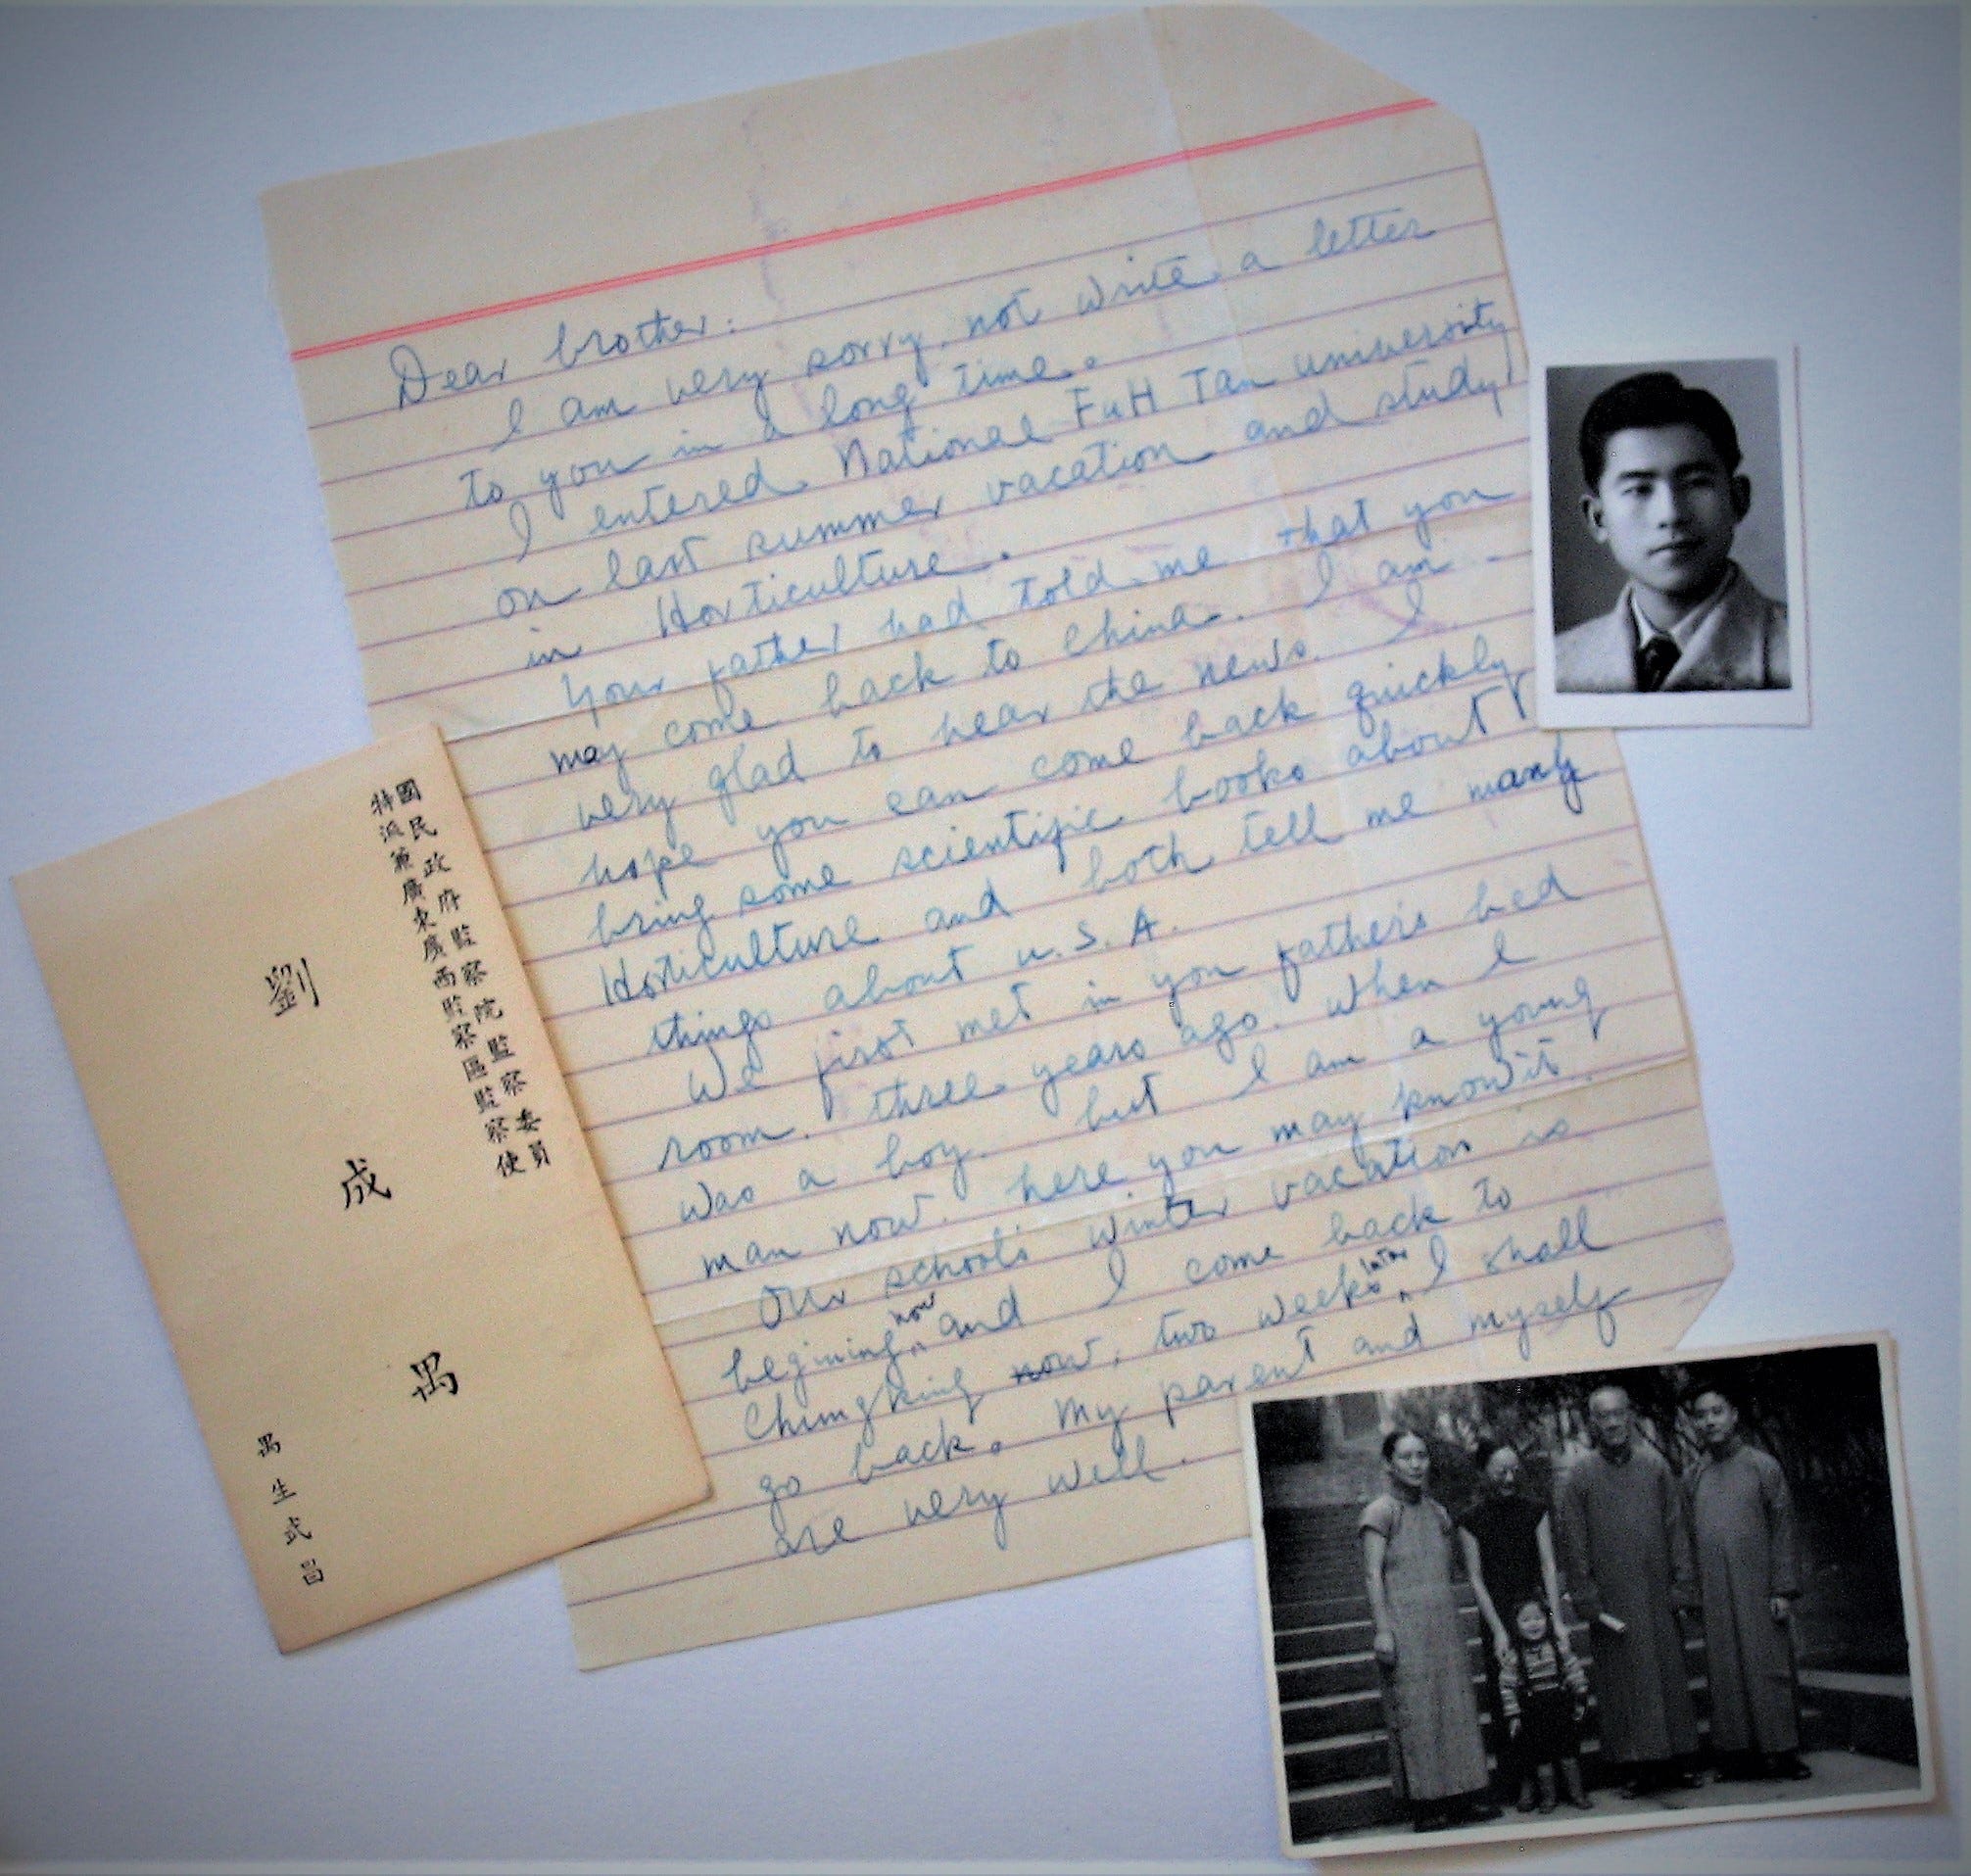 Dear brother:
I am very sorry, not write a letter
to you in a long time.
I entered National FuH Tan university
on last summer vacation and study
in Horticulture.
Your father had told me that you
may come back to China. I am
very glad to hear the news. I
hope you can come back quickly
bring some scientific books about
Horticulture and both tell me many
things about U.S.A.
We first met in you father's bed
room. three years ago. when I
was a boy. but I am a young
man now. here you may know it.
Our school's winter vacation is
begining now and I come back to
Chungking now, two weeks later I shall
go back. My parent and myself
are very well.
國民政府監察院監察委員
特派兼廣東廣西監察區監察使
劉成禺
禺生武昌